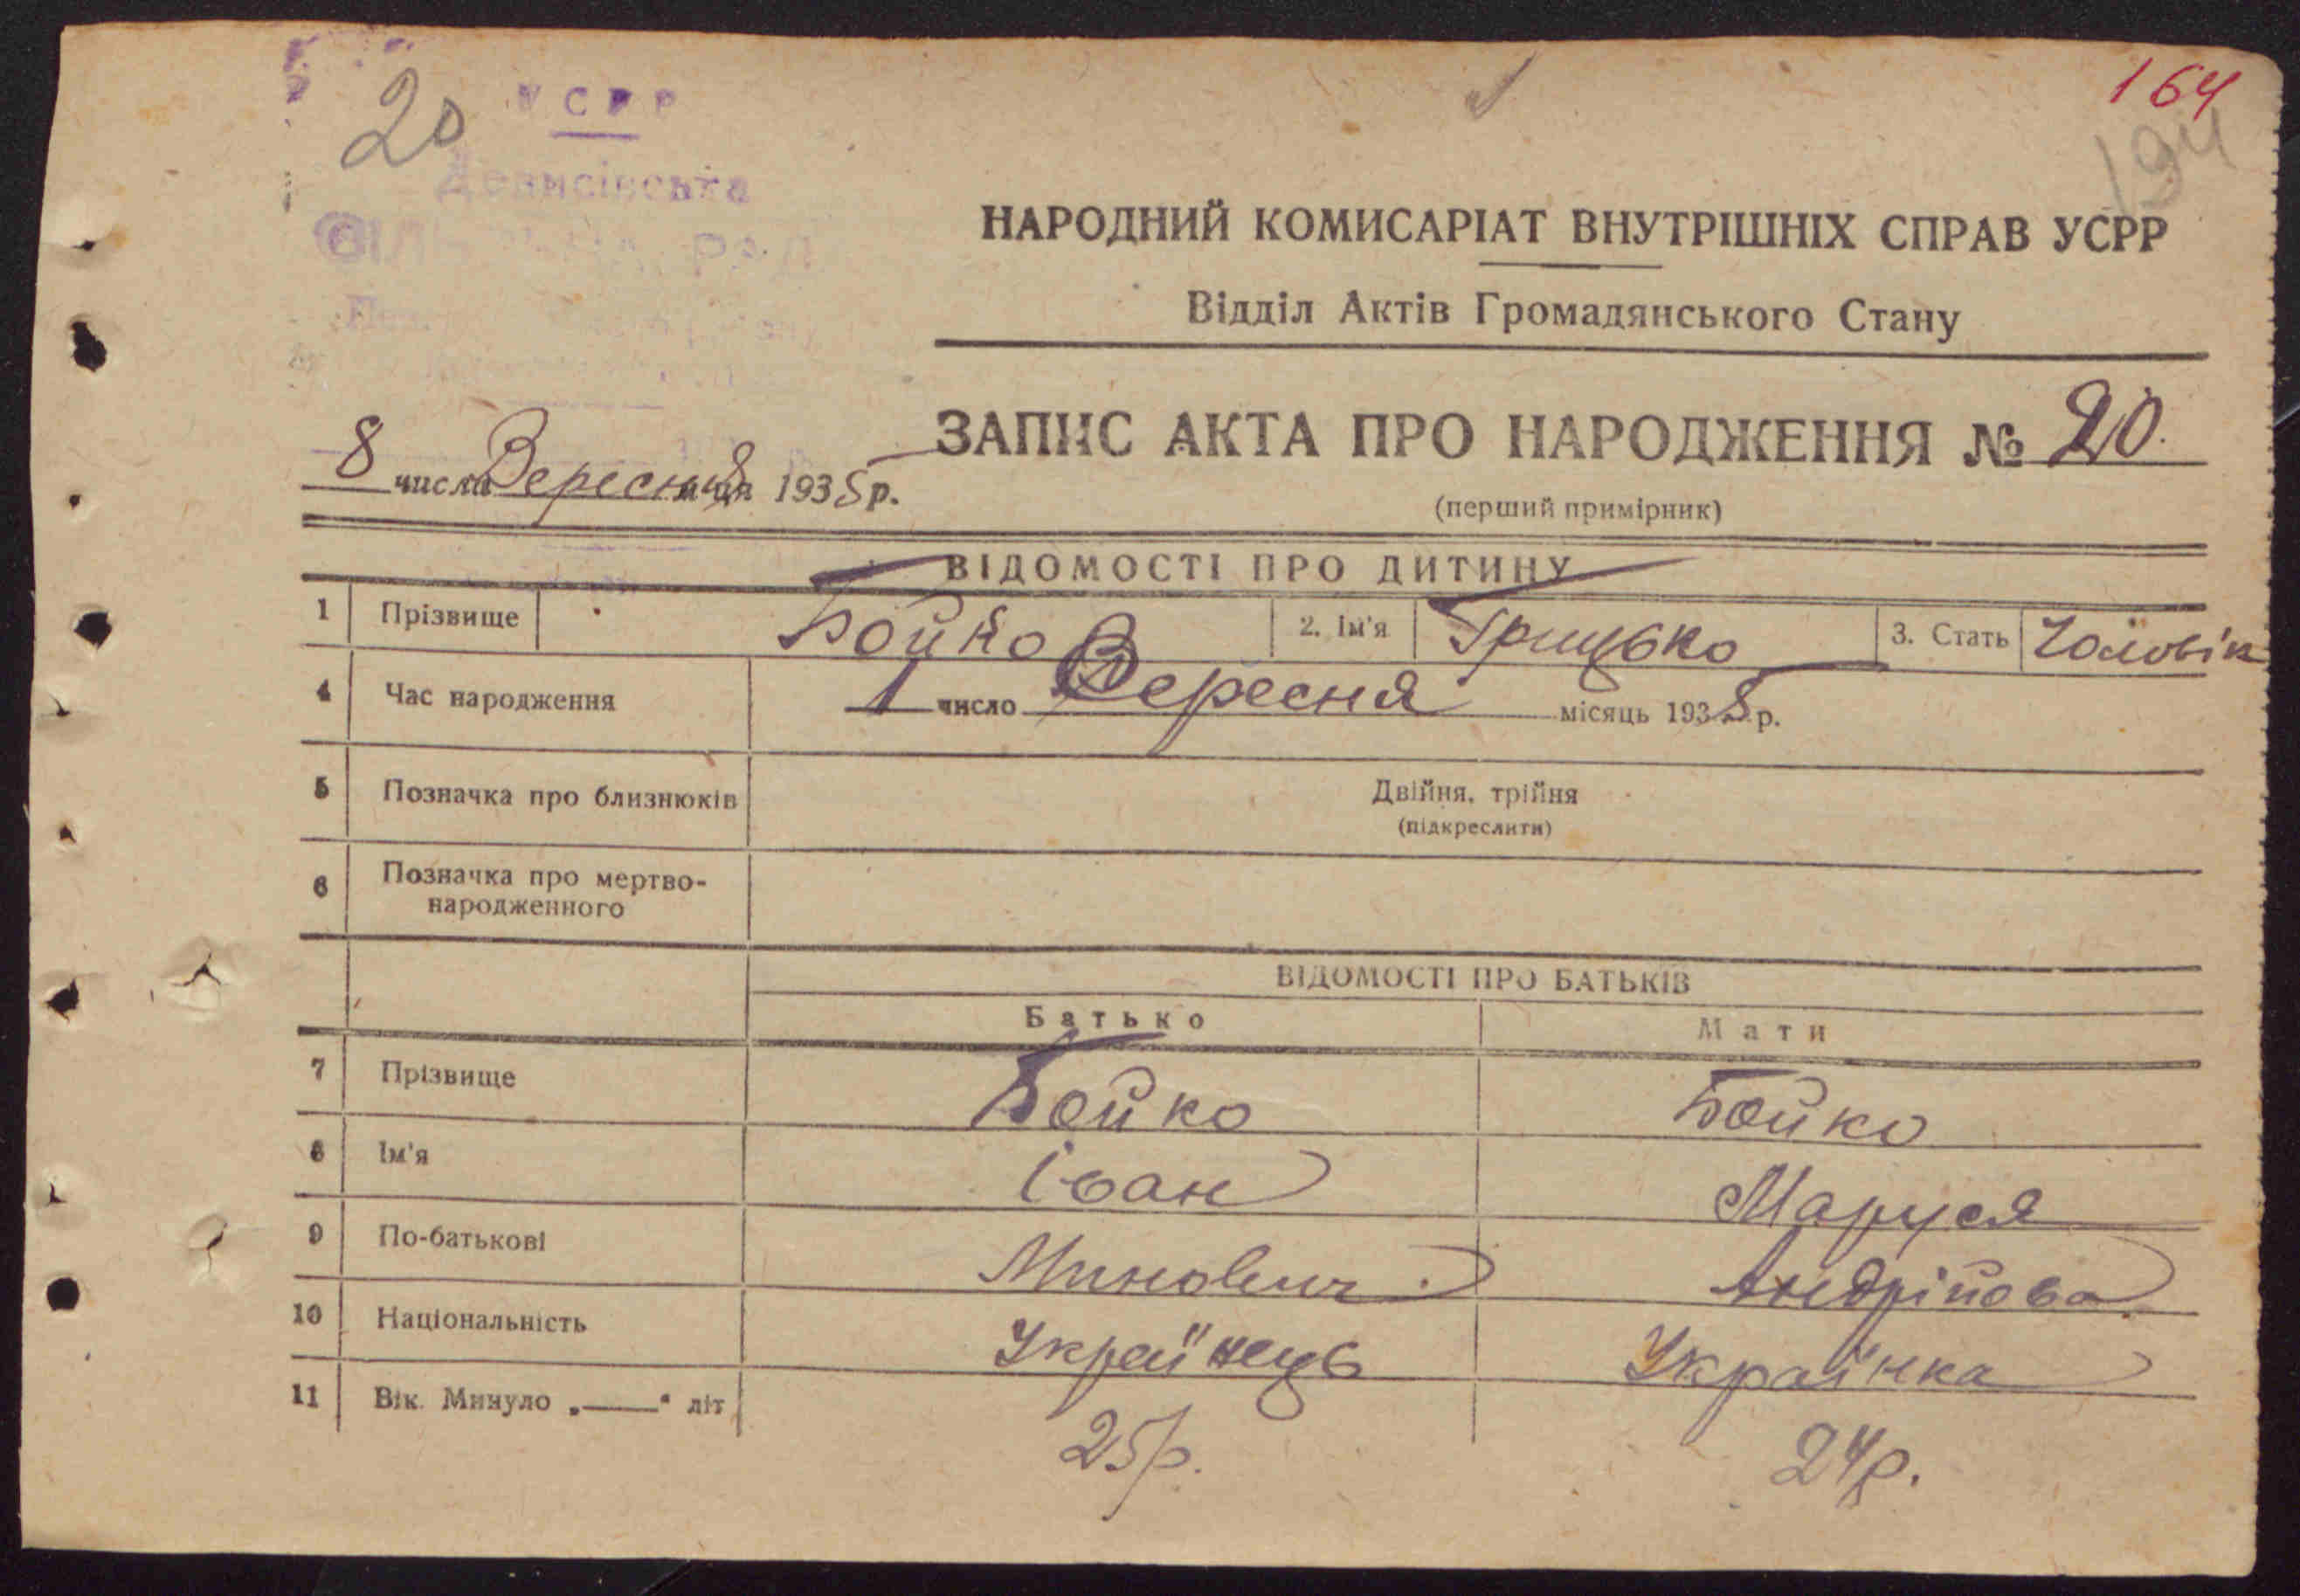 164
20 УСРР
194
Денисівська
НАРОДНИЙ КОМИСАРІАТ ВНУТРІШНІХ СПРАВ УСРР
Відділ Актів Громадянського Стану
ЗАПИС АКТА ПРО НАРОДЖЕННЯ № 20.
8 числа Вересня м-ця 1935 р.
(перший примірник)
ВІДОМОСТІ ПРО ДИТИНУ
1 Прізвище Бойко 2. Ім'я Грицько 3. Стать Чоловік
4 Час народження 1 число Вересня місяць 1935 р.
5 Позначка про близнюків Двійня, трійня
(підкреслити)
6 Позначка про мертво-
народженного
ВІДОМОСТІ ПРО БАТЬКІВ
Батько Мати
7 Прізвище Бойко Бойко
8 Ім'я Іван Маруся
9 По-батькові Минович Андрійова
10 Національність Українець Українка
11 Вік. Минуло „——“ літ 25 р. 24 р.